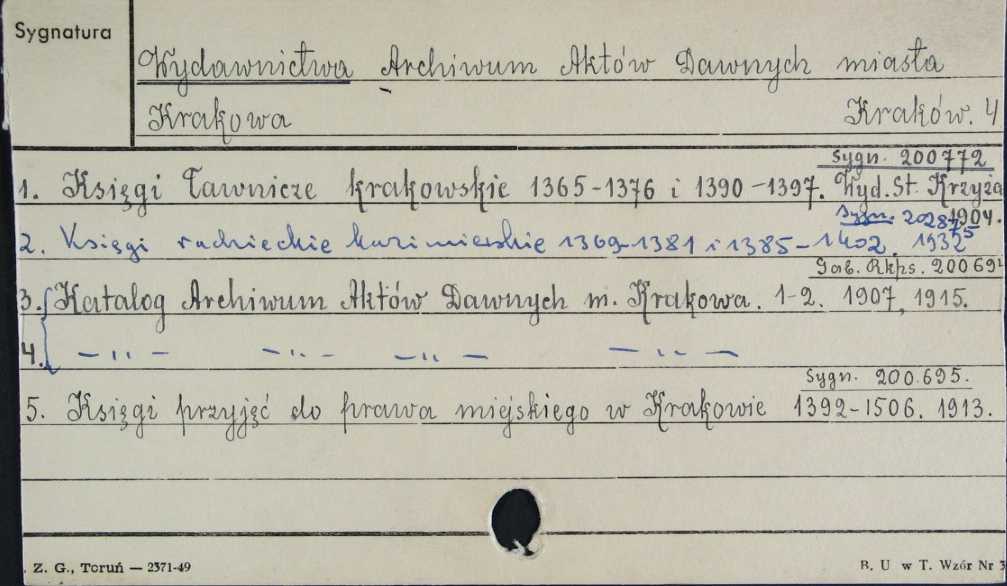 Sygnatura
Wydawnictwa Archiwum Aktów Dawnych miasta
Krakowa Kraków. 4
Sygn. 200772
1. Księgi Ławnicze krakowskie 1365-1376 i 1390-1397. Wyd. St. Krzyża
1904.
Sygn. 202875
2. Księgi radzieckie kazimierskie 1369-1381 i 1385-1402. 1932
Gab. Rkps. 200691
3. Katalog Archiwum Aktów Dawnych m. Krakowa. 1-2. 1907, 1915.
4. -"- -"- -"- -"-
Sygn. 200.695.
5. Księgi przyjęć do prawa miejskiego w Krakowie 1392-1506. 1913.
. Z. G., Toruń — 2371-49
B. U w T. Wzór Nr